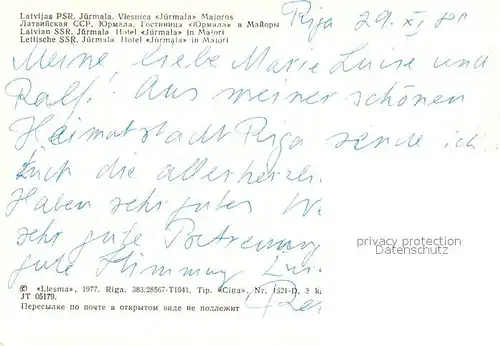 Latvijas PSR, Jūrmala. Viesnīca «Jūrmala» Majoros
Латвийская ССР, Юрмала, Гостиница «Юрмала» в Майоры
Latvian SSR, Jūrmala Hotel «Jūrmala» in Majori
Lettische SSR, Jūrmala Hotel «Jūrmala» in Majori
Riga 29. XI 80
Meine liebe Marie Luise und
Ralf! Aus meiner schönen
Heimatstadt Riga sende ich
Euch die allerherzl.
Haben sehr gutes W.
sehr gute Betreuung
gute Stimmung
privacy protection
Datenschutz
© «Liesma», 1977, Rīga, 383/28567-T1041. Tip. «Cīņa», Nr. 1521-D. 3 k
JT 05179.
Пересылке по почте в открытом виде не подлежит